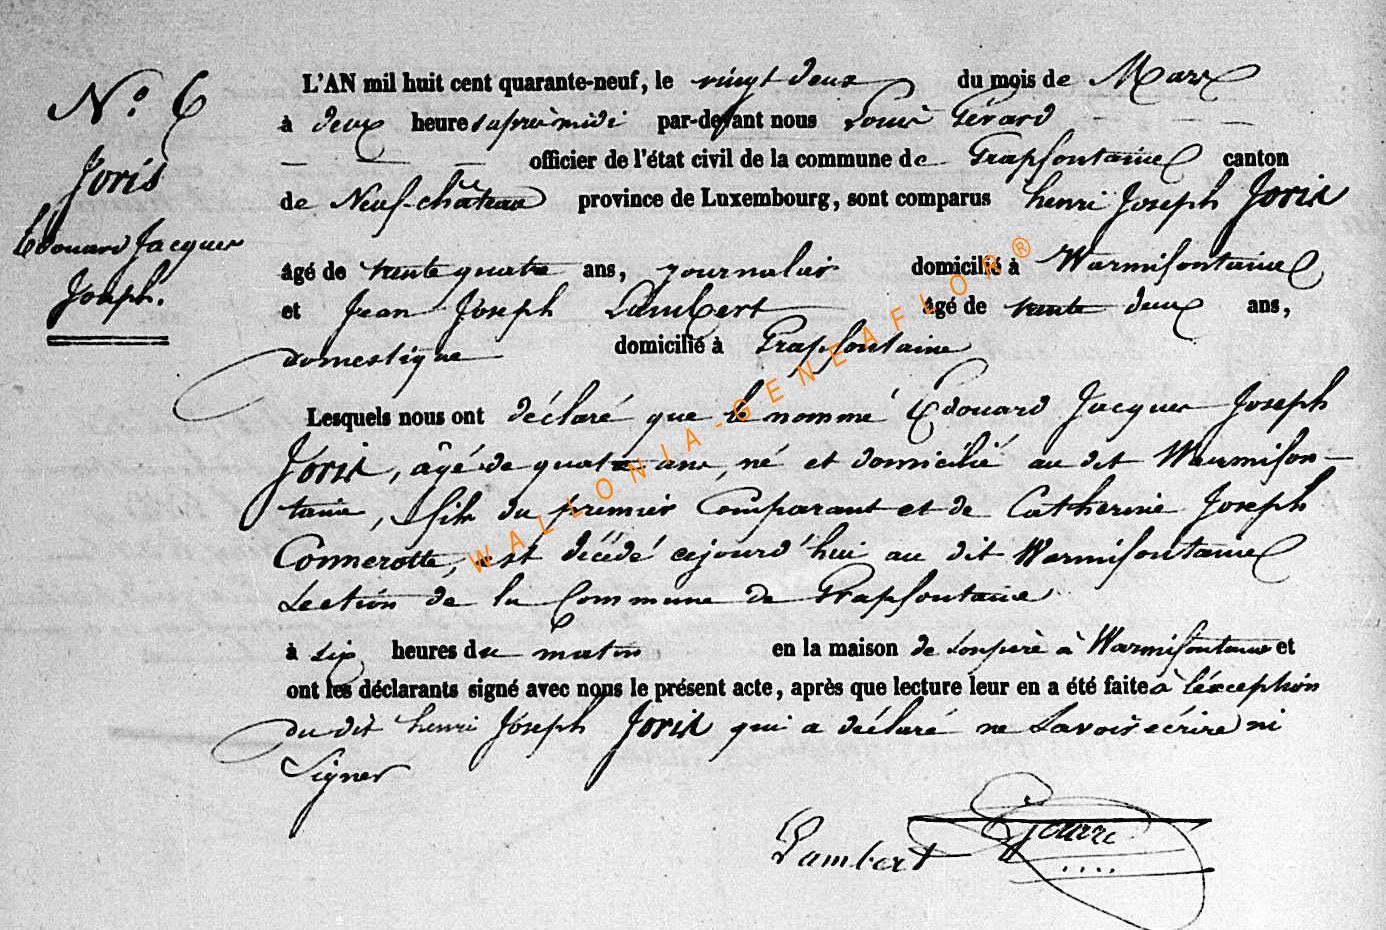 N.° 6
Joris
Edouard Jacques
Joseph.
L'AN mil huit cent quarante-neuf, le vingt deux du mois de Mars
à deux heures après midi par-devant nous Louis Gérard
officier de l'état civil de la commune de Grapfontaine canton
de Neufchâteau province de Luxembourg, sont comparus henri Joseph Joris
âgé de trente quatre ans, journalier domicilié à Warmifontaine
et Jean Joseph Lambert âgé de trente deux ans,
domestique domicilié à Grapfontaine
Lesquels nous ont déclaré que le nommé Edouard Jacques Joseph
Joris, âgé de quatre ans, né et domicilié au dit Warmifon-
taine, fils du premier Comparant et de Catherine Joseph
Connerotte, est décédé cejourd'hui au dit Warmifontaine
Section de la Commune de Grapfontaine
à six heures du matin en la maison de son père à Warmifontaine et
ont les déclarants signé avec nous le présent acte, après que lecture leur en a été faite à l'exception
du dit henri Joseph Joris qui a déclaré ne savoir écrire ni
Signer
Lambert
WALLONIA-GENEAFLOR®